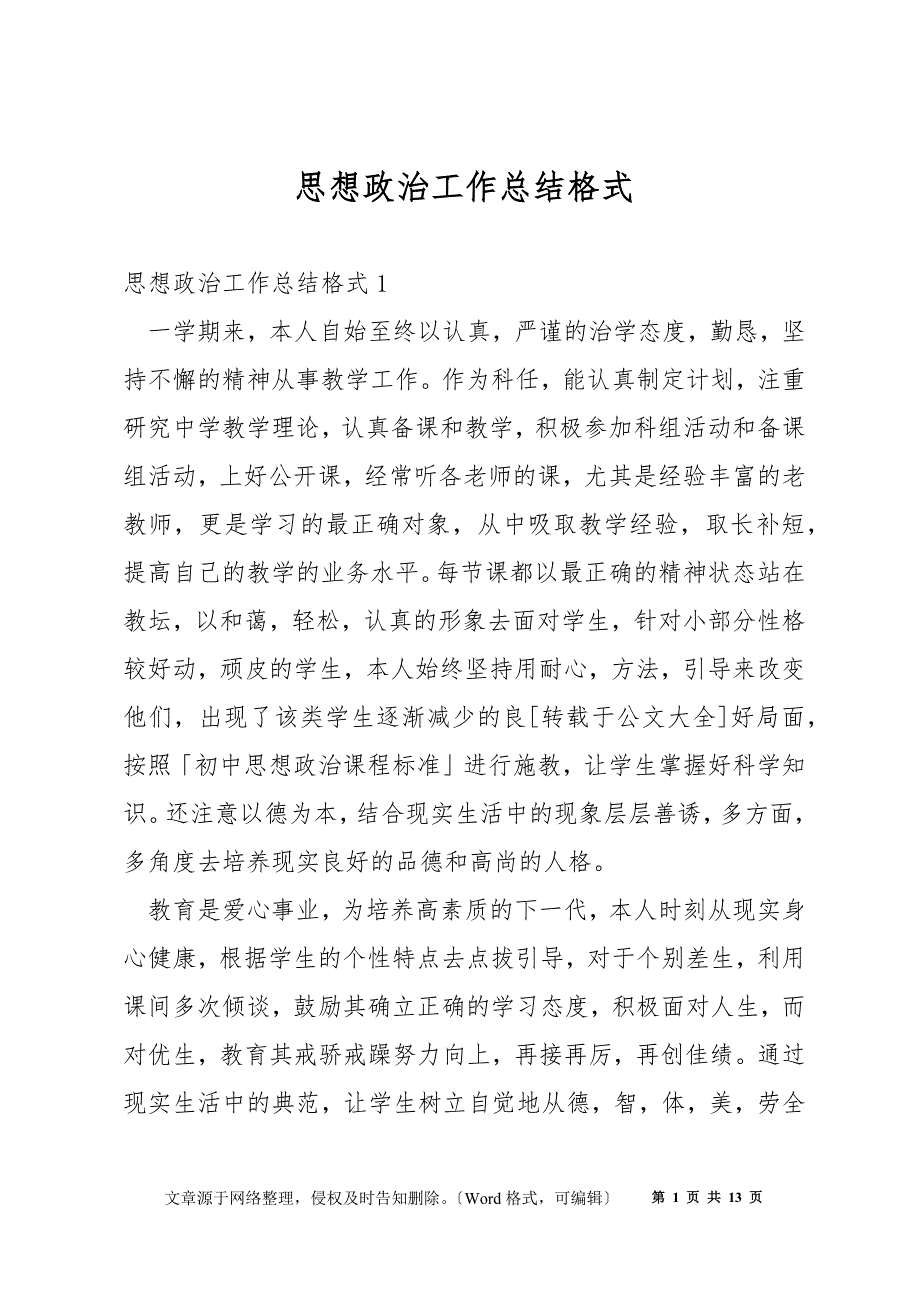 思想政治工作总结格式
思想政治工作总结格式 1
一学期来，本人自始至终以认真，严谨的治学态度，勤恳，坚
持不懈的精神从事教学工作。作为科任，能认真制定计划，注重
研究中学教学理论，认真备课和教学，积极参加科组活动和备课
组活动，上好公开课，经常听各老师的课，尤其是经验丰富的老
教师，更是学习的最正确对象，从中吸取教学经验，取长补短，
提高自己的教学的业务水平。每节课都以最正确的精神状态站在
教坛，以和蔼，轻松，认真的形象去面对学生，针对小部分性格
较好动，顽皮的学生，本人始终坚持用耐心，方法，引导来改变
他们，出现了该类学生逐渐减少的良[转载于公文大全]好局面，
按照「初中思想政治课程标准」进行施教，让学生掌握好科学知
识。还注意以德为本，结合现实生活中的现象层层善诱，多方面，
多角度去培养现实良好的品德和高尚的人格。
教育是爱心事业，为培养高素质的下一代，本人时刻从现实身
心健康，根据学生的个性特点去点拨引导，对于个别差生，利用
课间多次倾谈，鼓励其确立正确的学习态度，积极面对人生，而
对优生，教育其戒骄戒躁努力向上，再接再厉，再创佳绩。通过
现实生活中的典范，让学生树立自觉地从德，智，体，美，劳全
文章源于网络整理，侵权及时告知删除。〔Word 格式，可编辑〕 第 1 页 共 13 页